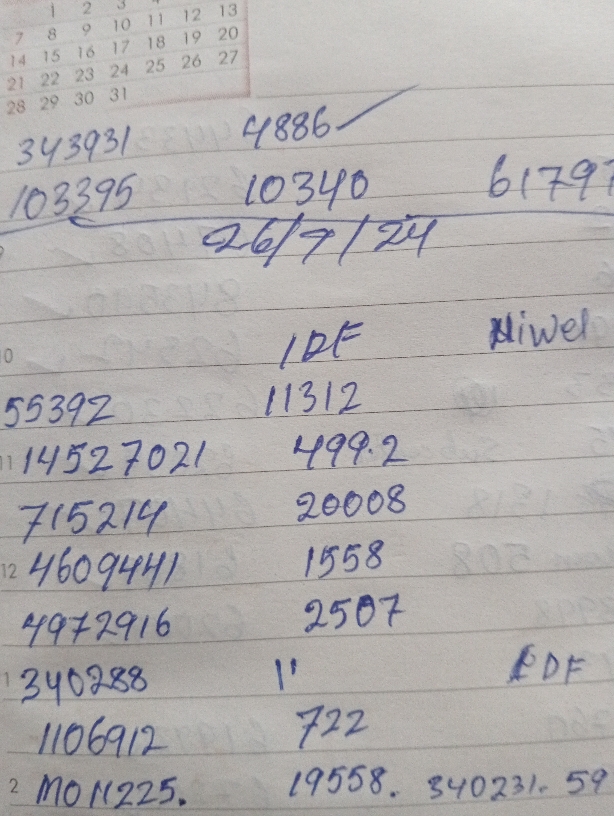 1 2 3 4
7 8 9 10 11 12 13
14 15 16 17 18 19 20
21 22 23 24 25 26 27
28 29 30 31
343931 4886
103395 10340 61797
26/7/24
10 IDF Niwel
55392 11312
11 14527021 499.2
715214 20008
12 4609441 1558
4972916 2507
1 340288 11 PDF
1106912 722
2 M011225. 19558. 340231. 59